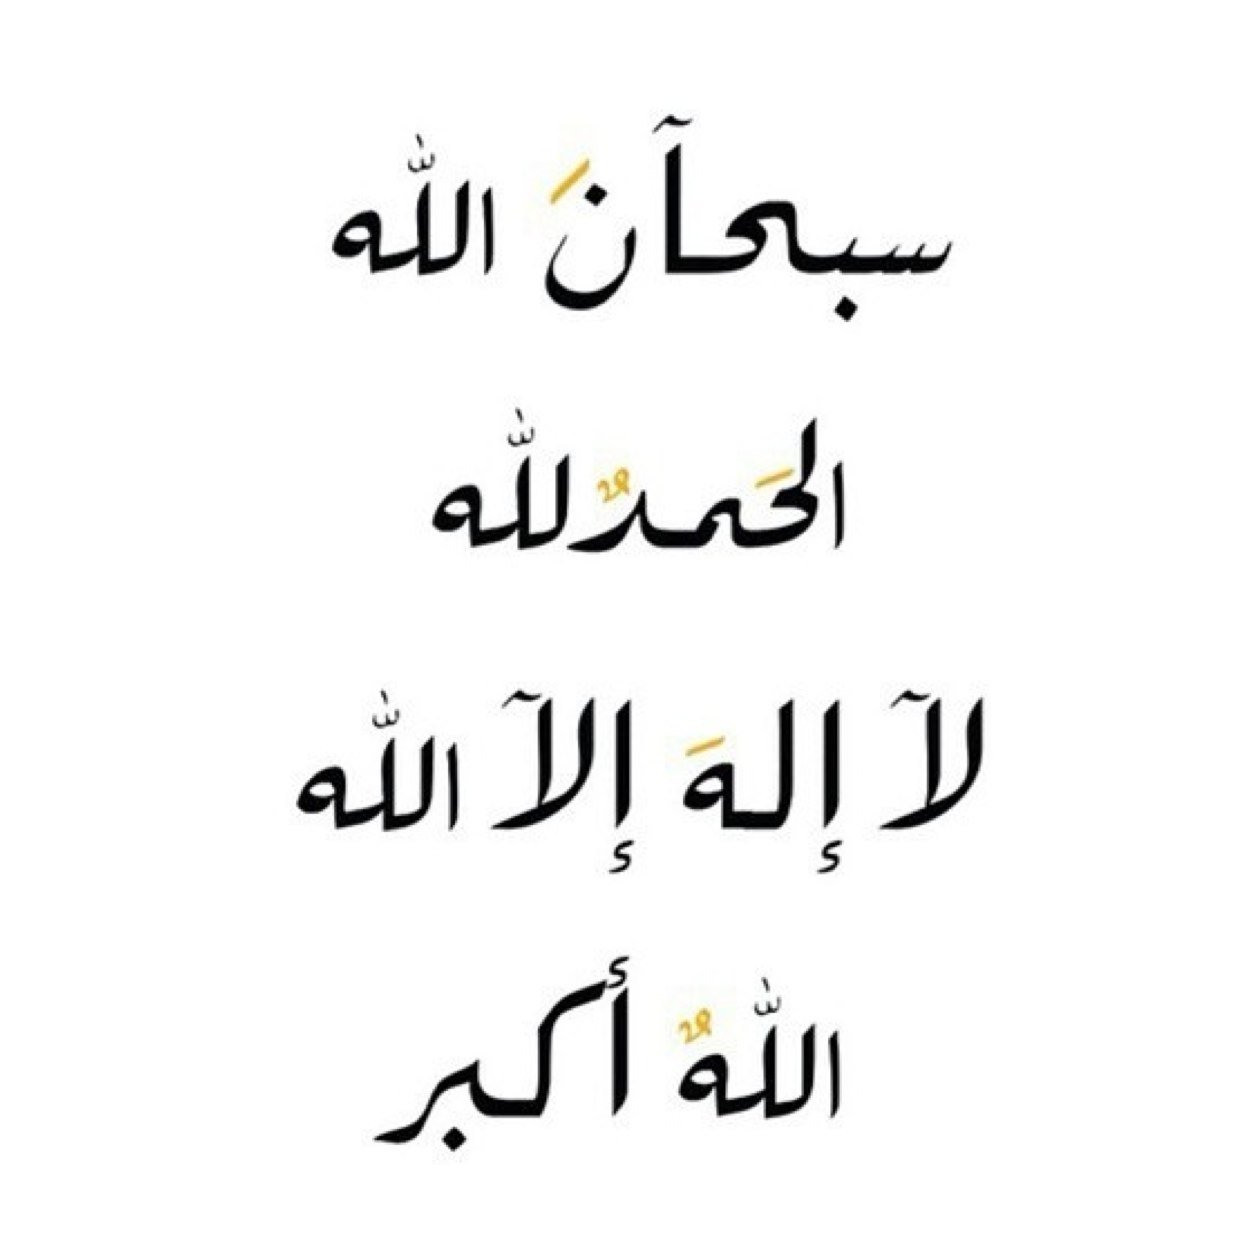 سبحآنَ الله
الحَمدٌلله
لآ إلهَ إلآ الله
اللهٌ أكبر